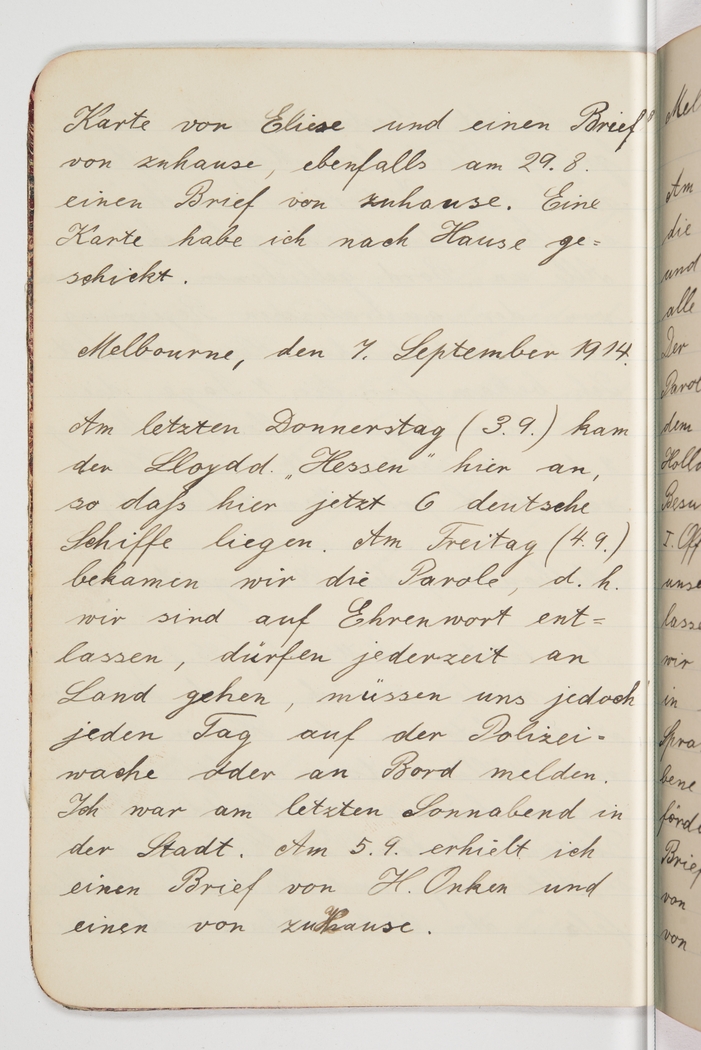 Karte von Eliese und einen Brief
von zuhause, ebenfalls am 29. 8.
einen Brief von zuhause. Eine
Karte habe ich nach Hause ge=
schickt.
Melbourne, den 7. September 1914.
Am letzten Donnerstag (3. 9.) kam
der Lloydd. „Hessen" hier an,
so daſs hier jetzt 6 deutsche
Schiffe liegen. Am Freitag (4. 9.)
bekamen wir die Parole, d. h.
wir sind auf Ehrenwort ent=
lassen, dürfen jederzeit an
Land gehen, müssen uns jedoch
jeden Tag auf der Polizei=
wache oder an Bord melden.
Ich war am letzten Sonnabend in
der Stadt. Am 5. 9. erhielt ich
einen Brief von H. Onken und
einen von zuhause.
Mel
Am
die
und
alle
Der
Parol
dem
Hollo
Besu
I. Off
unse
lasse
wir
in
Spra
bene
förde
Brief
von
von